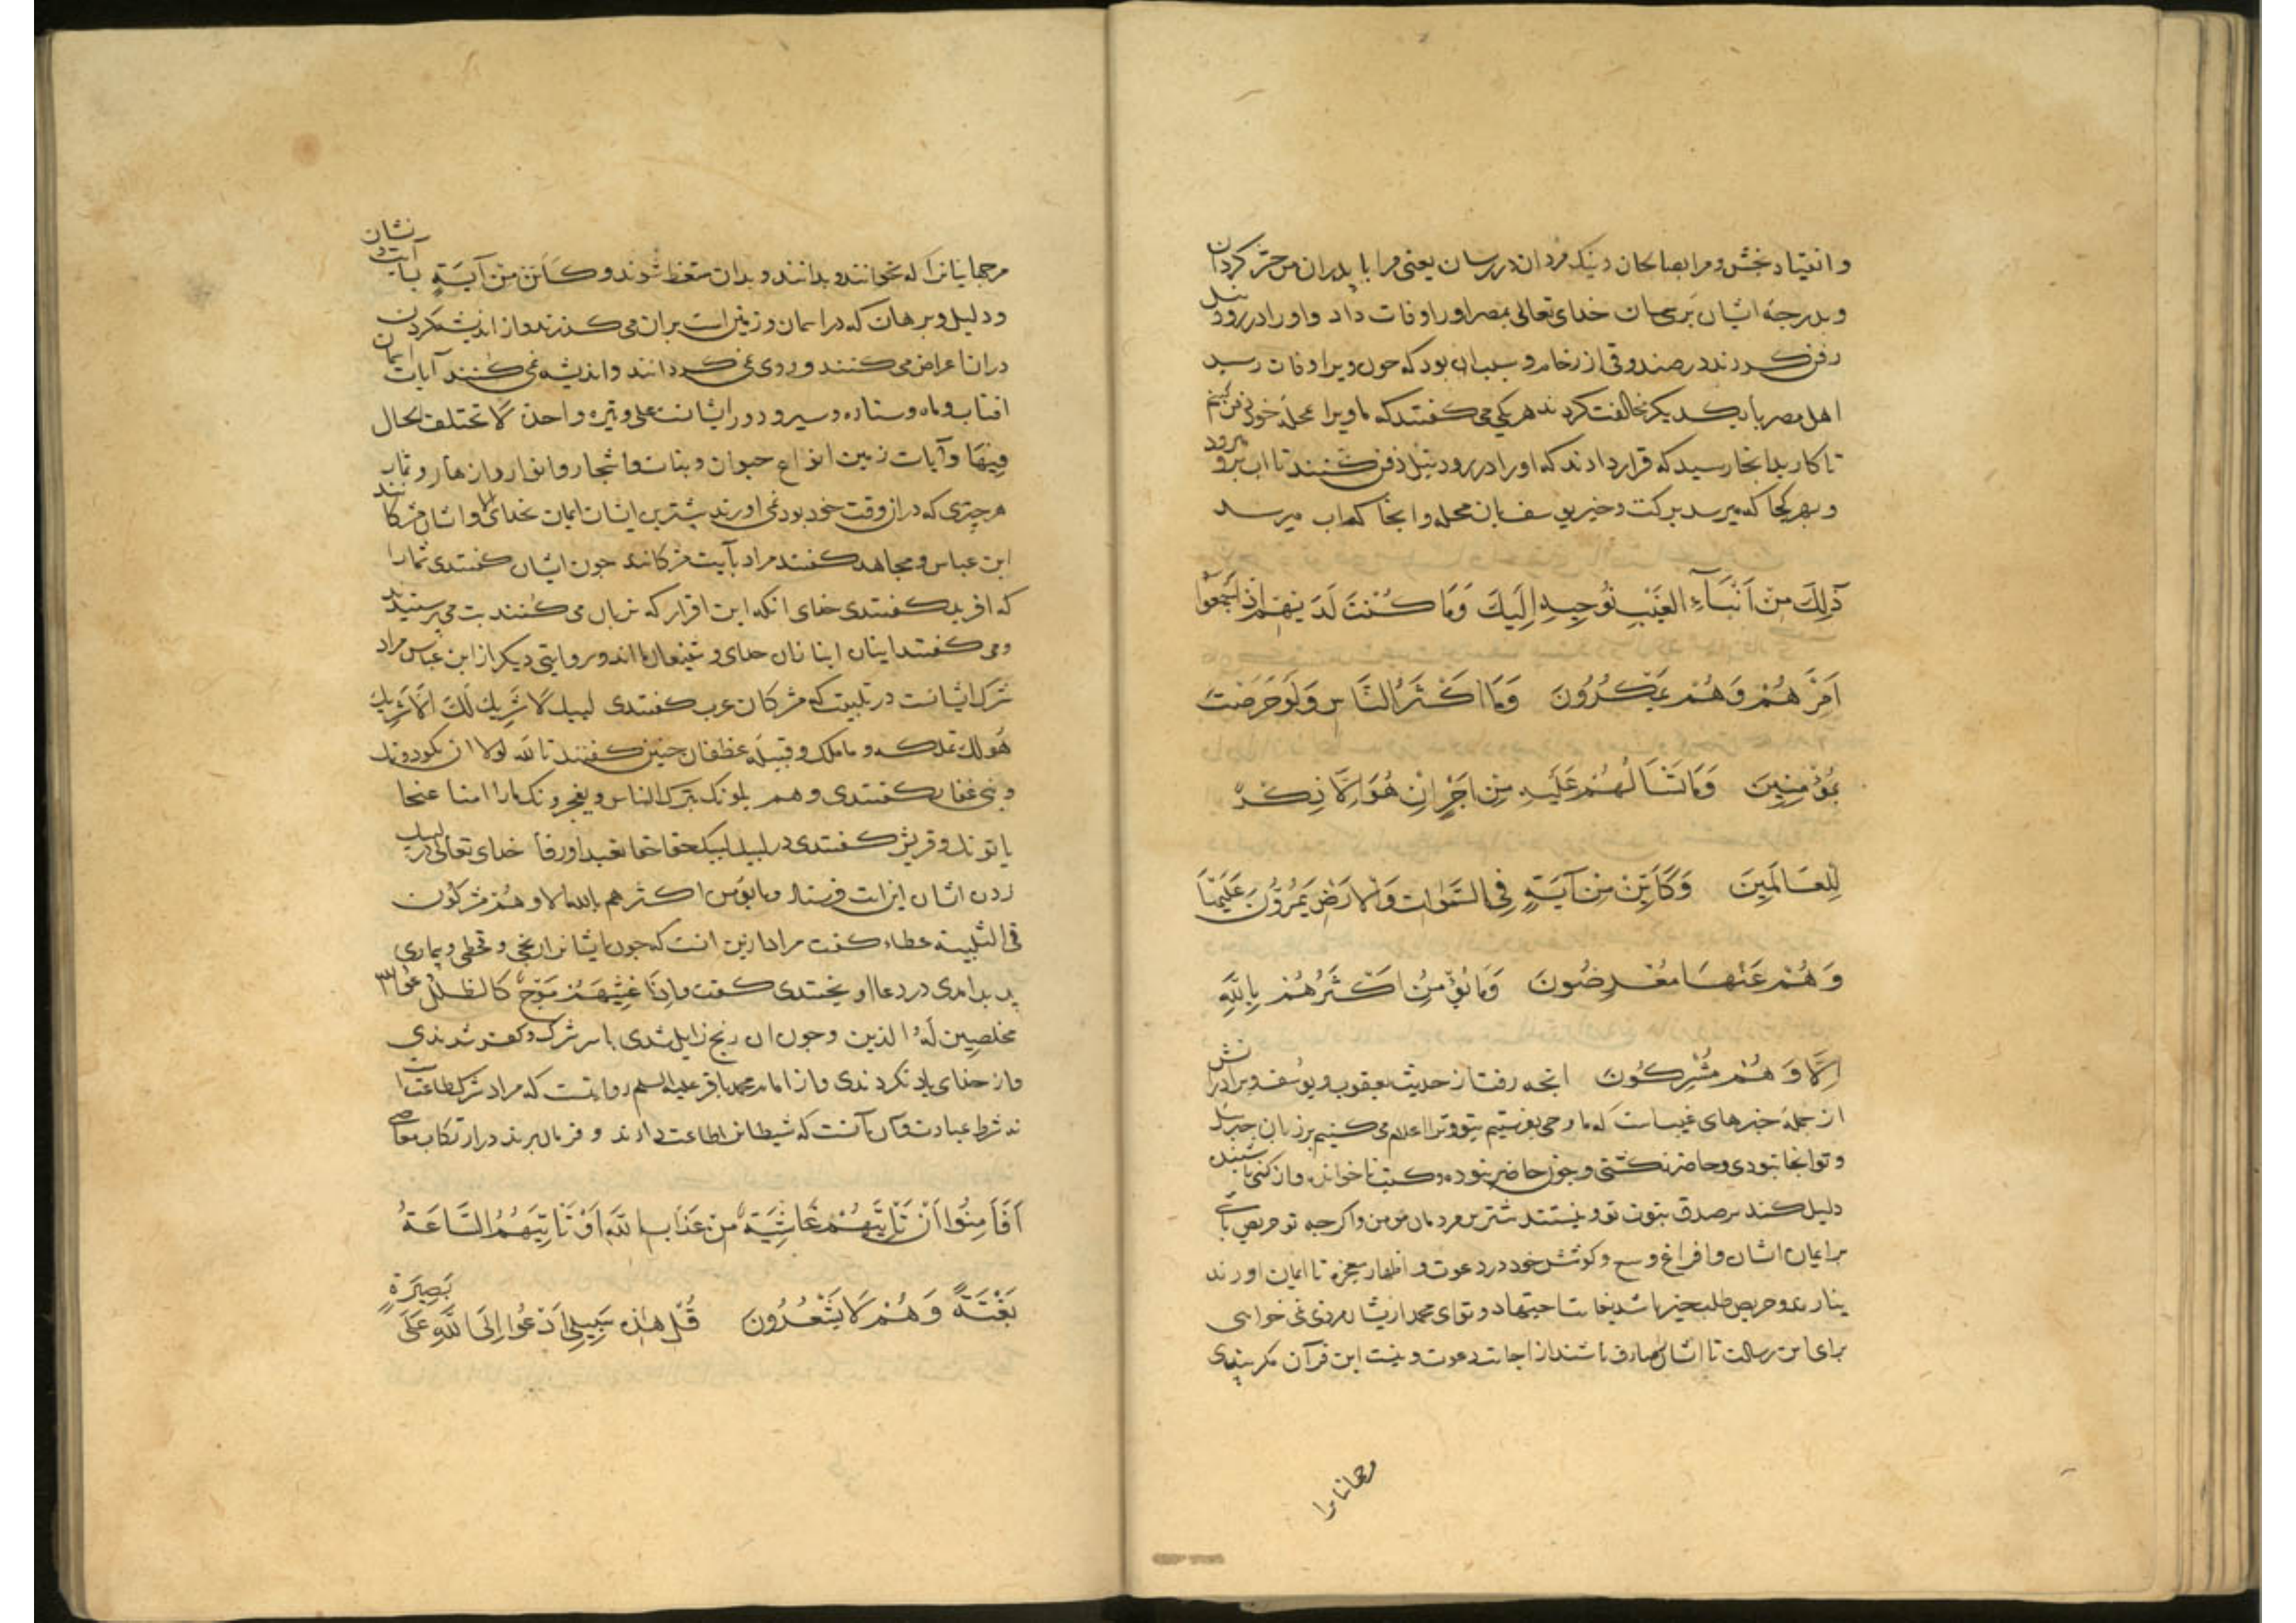 وانقیاد بخش و مرا بصالحان و نیک مردان در رسان یعنی مرا با پدران من حشر کردان
و بدرجه ایشان برسان خدای تعالی بمصر اورا وفات داد و اورا در رود نیل
دفن کردند در صندوقی از رخام و سبب ان بود که چون ویرا وفات رسید
اهل مصر با یکدیگر مخالفت کردند هر یکی می کفتند که ما ویرا بمحله خود دفن کنیم
تا کار بدانجا رسید که قرار دادند که اورا در رود نیل دفن کنند تا اب برو رود
و بهر کجا که میرسد برکت و خیر بدان محله و انجا که اب میرسد
ذَلِكَ مِنْ اَنْبَآءِ الغَيْبِ نُوحِيهِ اِلَيكَ وَمَا كُنْتَ لَدَيْهِمْ اِذْ اَجْمَعُوا
اَمْرَهُمْ وَهُمْ يَمْكُرُونَ وَمَا اَكْثَرُ النَّاسِ وَلَو حَرَصْتَ
بِمُؤْمِنِينَ وَمَا تَسْأَلُهُمْ عَلَيْهِ مِنْ اَجْرٍ اِنْ هُوَ اِلَّا ذِكْرٌ
لِلْعَالَمِينَ وَكَاَيِّنْ مِنْ آيَةٍ فِي السَّمٰوَاتِ وَالْاَرْضِ يَمُرُّونَ عَلَيْهَا
وَهُمْ عَنْهَا مُعْرِضُونَ وَمَا يُؤْمِنُ اَكْثَرُهُمْ بِاللّٰهِ
اِلَّا وَهُمْ مُشْرِكُونَ انچه رفت از حدیث یعقوب و یوسف و برادرانش
از جمله خبرهای غیب است که ما وحی بفرستیم بتو و ترا اعلام می کنیم بر زبان جبرئیل
و تو انجا نبودی و حاضر نکشتی و چون حاضر نبوده و کتب نا خوانده و از کسی نا شنیده
دلیل کند بر صدق نبوت تو و نیستند بیشترین مردمان مومن و اکرچه تو حریص باشی
بر ایمان ایشان و افراغ وسع و کوشش خود در دعوت و اظهار معجزه تا ایمان اورند
نیارند و حریص طلب چیز باشد بغایت اجتهاد و تو ای محمد از ایشان مزدی نمی خواهی
برای این رسالت تا ایشان صارف باشند از اجابت دعوت و نیست این قرآن مکر پندی
مرجهانیانرا
مرجهانیانرا که بخوانند و بدانند و بدان متعظ شوند و كَاَيِّنْ مِنْ آيَةٍ بسا آیت و نشان
و دلیل و برهان که در اسمان و زمین است بران می کذرند و از اندیشه کردن
دران اعراض می کنند و روی می کردانند و اندیشه نمی کنند ایمان آیات
افتاب و ماه و ستاره و سیر و دور ایشانست علی وتیره واحدة لا تختلف الحال
فیها و آیات زمین انواع حیوان و نبات و اشجار و انوار و ازهار و ثمار
هر چیزی که در از وقت خود بود نمی اورند بیشترین ایشان ایمان بخدای الا و ایشان مشرکانند
ابن عباس و مجاهد کفتند مراد بآیت مشرکانند چون ایشان کفتندی شمارا
که افرید کفتندی خدای انکه این اقرار که بزبان می کنند بت می پرستیدند
و می کفتند اینان انبازان خدای و شفیعان ما اند و روایتی دیکر از ابن عباس مراد
شرک ایشانست در تلبیت که مشرکان عرب کفتندی لبیك لا شریك لك الا شریك
هو لك تملکه و ما ملك و قبیله غطفان چنین کفتند
و بنی غفار کفتندی و هم
و قریش کفتندی در لبیك لبیك حقا حقا تعبدا ورقا خدای تعالی در لبیك
زدن ایشان این ایت فرستاد وما یؤمن اکثرهم بالله الا وهم مشرکون
فی التلبیة عطاء کفت مراد ازین انست که چون ایشانرا رنجی و قحطی و بیماری
پدید امدی در دعا اویختندی کقوله وَاِذَا غَشِيَهُمْ مَوْجٌ كَالظُّلَلِ دَعَوُا اللّٰه
مخلصین لَهُ الدین و چون ان رنج زایل شدی با سر شرک و کفر شدندی
و از خدای یاد نکردندی و از امام محمد باقر علیه السلم روایتست که مراد شرک طاعتست
نه شرط عبادت و آن آنست که شیطانرا طاعت دارند و فرمان برند در ارتکاب معاصی
اَفَأَمِنُوا اَنْ تَأْتِيَهُمْ غَاشِيَةٌ مِنْ عَذَابِ اللّٰهِ اَوْ تَأْتِيَهُمُ السَّاعَةُ
بَغْتَةً وَهُمْ لَا يَشْعُرُونَ قُلْ هٰذِهِ سَبِيلِي اَدْعُوا اِلَى اللّٰهِ عَلَى بَصِيرَةٍ